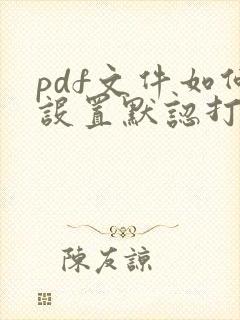 pdf文件如何
設置默認打
陳友諒